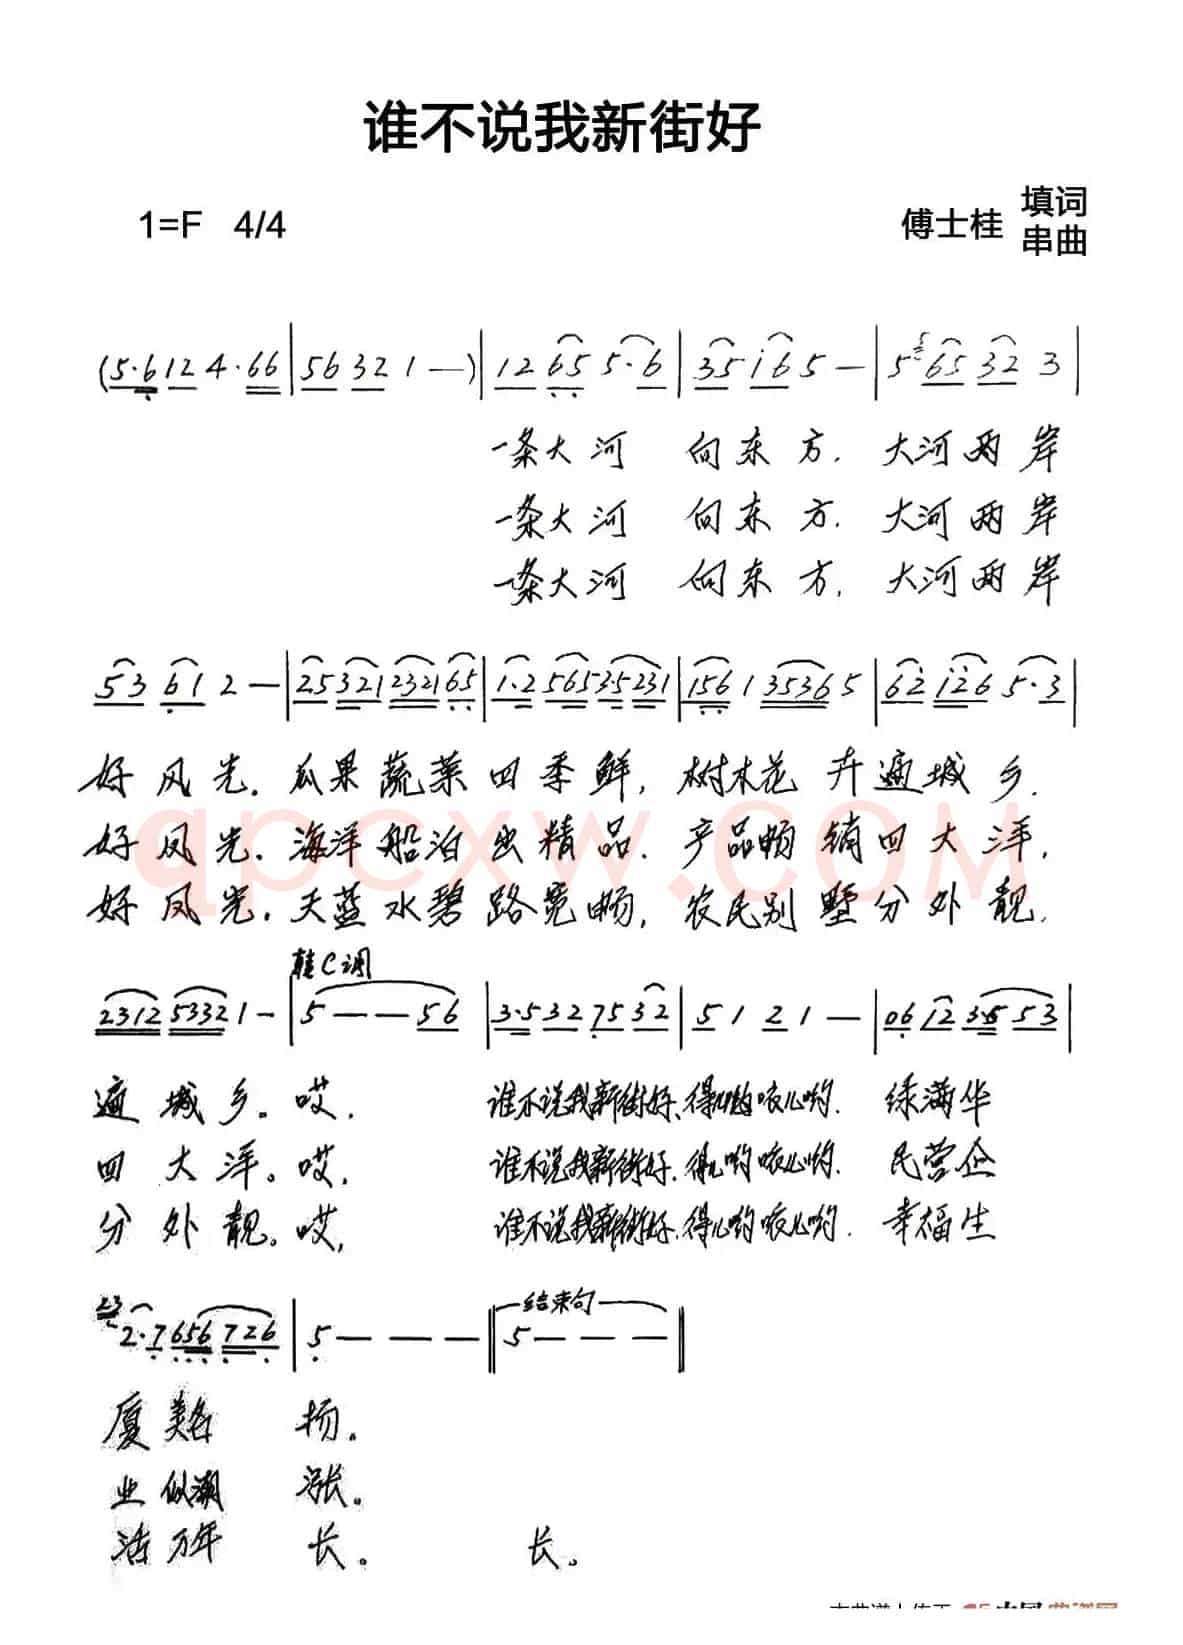 谁不说我新街好
1=F 4/4
傅士桂 填词
串曲
(5·6 12 4·66 | 56 32 1 —) | 12 65 5·6 | 35 i6 5 — | 5 65 32 3 |
一条大河 向东方. 大河两岸
一条大河 向东方. 大河两岸
一条大河 向东方. 大河两岸
53 61 2 — | 25 321 2321 65 | 1·2 565 3·5 231 | 156 1 3536 5 | 62 i26 5·3 |
好风光. 瓜果蔬菜四季鲜, 树木花卉遍城乡.
好风光. 海洋船泊出精品. 产品畅销四大洋,
好风光. 天蓝水碧路宽畅, 农民别墅分外靓.
转C调
2312 5332 1 — | 5 — — 56 | 3·5 32 75 32 | 51 21 — | 06 12 3·5 53 |
遍城乡。哎, 谁不说我新街好、得儿哟咳儿哟. 绿满华
四大洋。哎, 谁不说我新街好. 得儿哟咳儿哟. 民营企
分外靓。哎, 谁不说我新街好. 得儿哟咳儿哟. 幸福生
结束句
23 2·7 656 726 | 5 — — — || 5 — — — ||
厦美名 扬。
业似潮 涨。
活万年 长。 长。
qpcxw.com